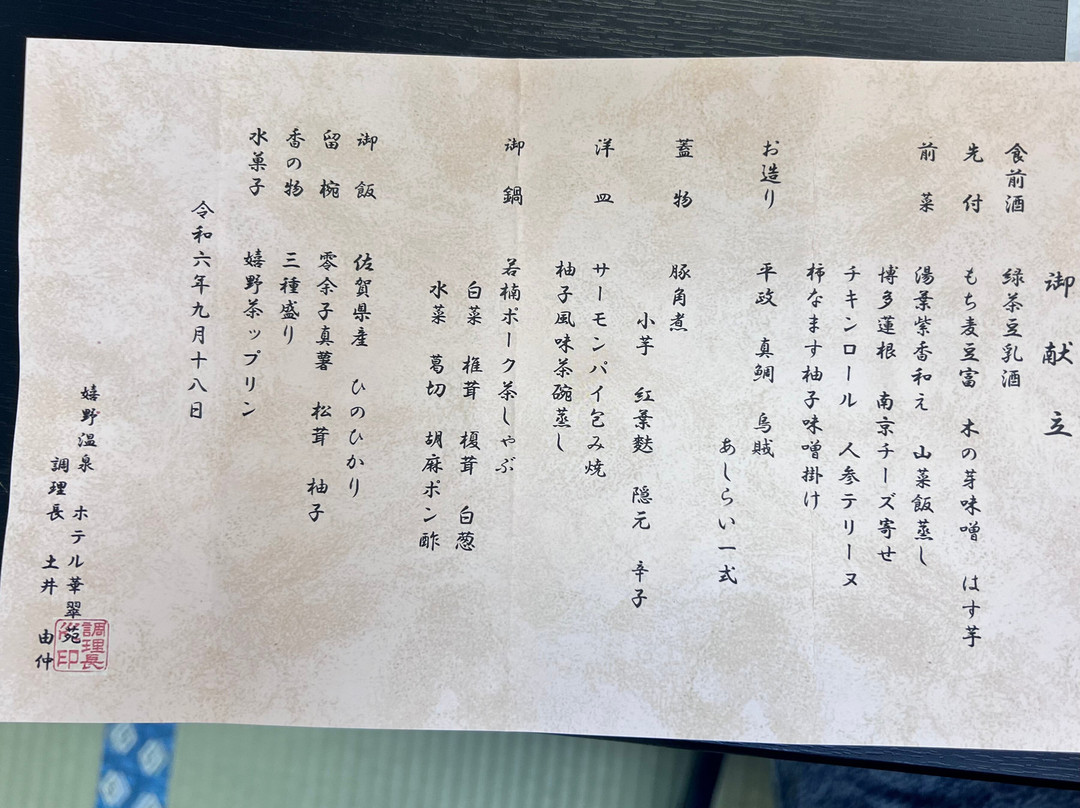 御献立
食前酒 緑茶豆乳酒
先付 もち麦豆富 木の芽味噌 はす芋
前菜 湯葉紫香和え 山菜飯蒸し
博多蓮根 南京チーズ寄せ
チキンロール 人参テリーヌ
柿なます柚子味噌掛け
お造り 平政 真鯛 烏賊
あしらい一式
蓋物 豚角煮
小芋 紅葉麩 隠元 辛子
洋皿 サーモンパイ包み焼
柚子風味茶碗蒸し
御鍋 若楠ポーク茶しゃぶ
白菜 椎茸 榎茸 白葱
水菜 葛切 胡麻ポン酢
御飯 佐賀県産 ひのひかり
留椀 零余子真薯 松茸 柚子
香の物 三種盛り
水菓子 嬉野茶ップリン
令和六年九月十八日
嬉野温泉 ホテル華翠苑
調理長 土井 由仲
調理長
印